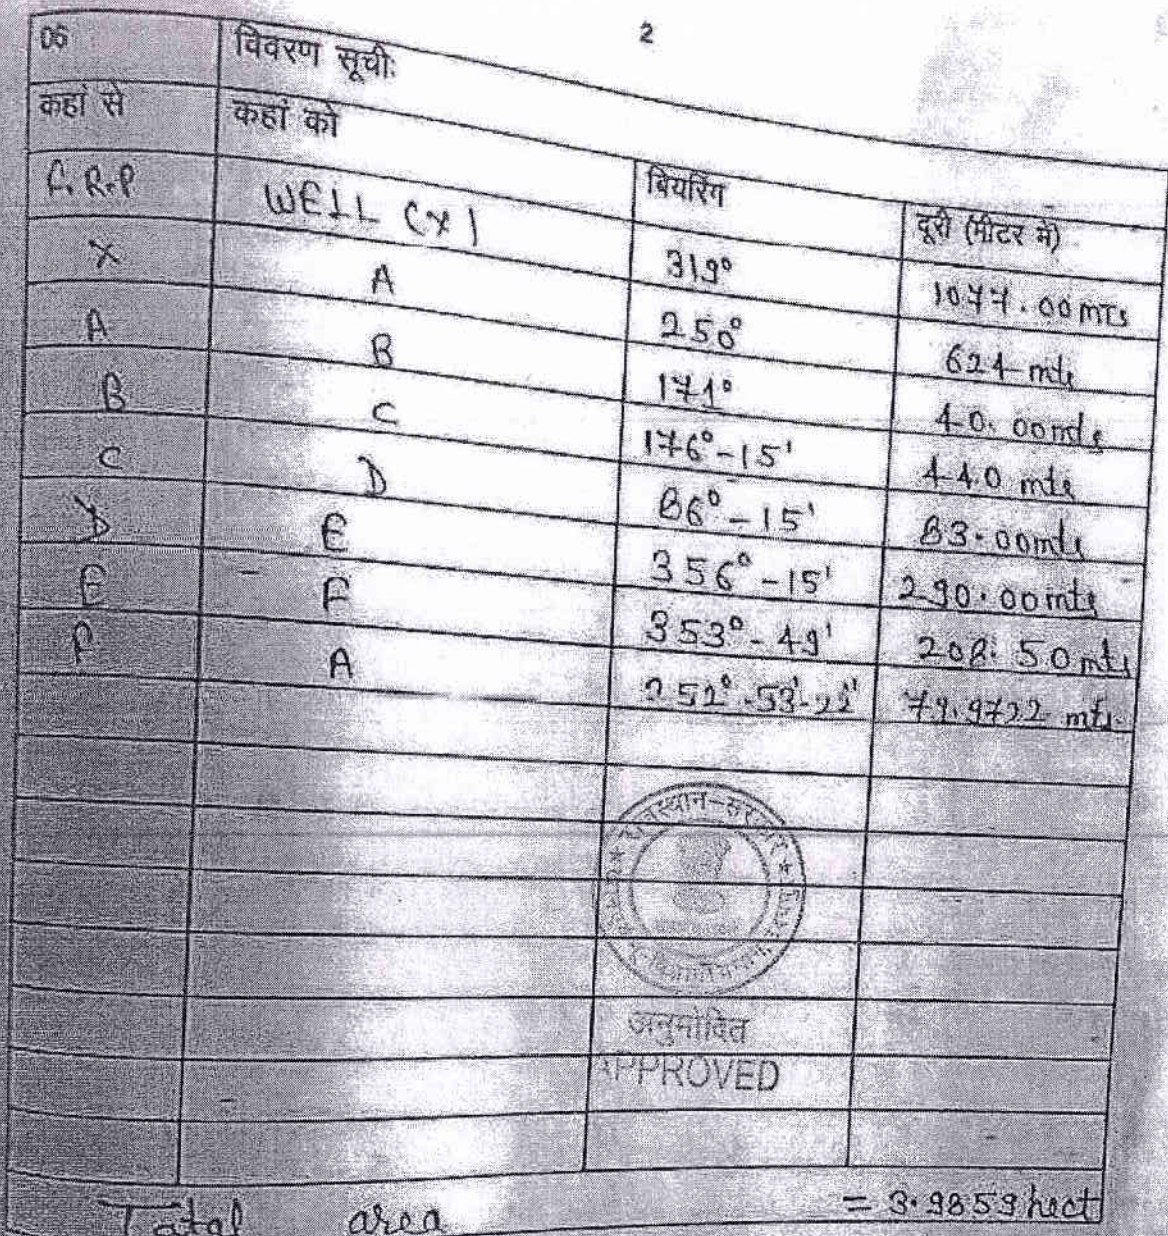 2
06 विवरण सूचीः
कहां से कहां को बियरिंग दूरी (मीटर में)
F.R.P WELL (X) 319° 1077.00 mts
X A 250° 621 mts
A B 171° 40.00 mts
B C 176°-15' 440 mts
C D 86°-15' 83.00 mts
D E 356°-15' 290.00 mts
E F 353°-49' 208.50 mts
F A 252°-53'-22" 79.9722 mts
राजस्थान-सरकार
अनुमोदित
APPROVED
Total area = 3.9859 hect